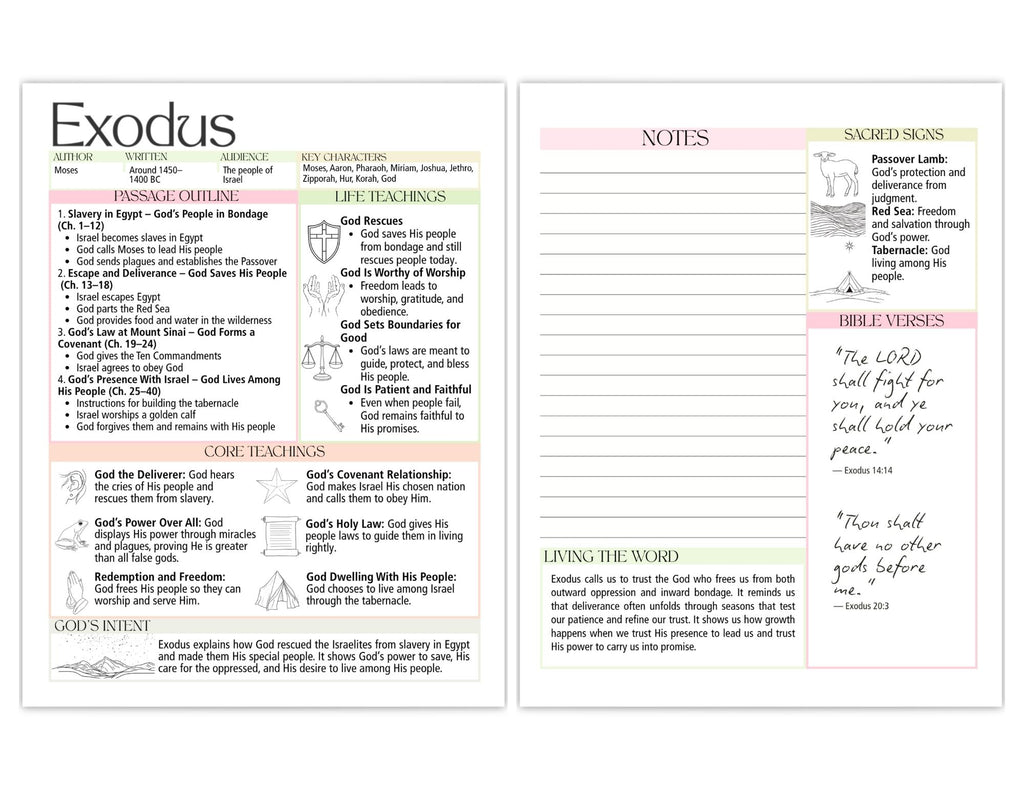 Exodus
AUTHOR
Moses
WRITTEN
Around 1450–
1400 BC
AUDIENCE
The people of
Israel
KEY CHARACTERS
Moses, Aaron, Pharaoh, Miriam, Joshua, Jethro,
Zipporah, Hur, Korah, God
PASSAGE OUTLINE
1. Slavery in Egypt – God's People in Bondage
(Ch. 1–12)
• Israel becomes slaves in Egypt
• God calls Moses to lead His people
• God sends plagues and establishes the Passover
2. Escape and Deliverance – God Saves His People
(Ch. 13–18)
• Israel escapes Egypt
• God parts the Red Sea
• God provides food and water in the wilderness
3. God's Law at Mount Sinai – God Forms a
Covenant (Ch. 19–24)
• God gives the Ten Commandments
• Israel agrees to obey God
4. God's Presence With Israel – God Lives Among
His People (Ch. 25–40)
• Instructions for building the tabernacle
• Israel worships a golden calf
• God forgives them and remains with His people
LIFE TEACHINGS
God Rescues
• God saves His people
from bondage and still
rescues people today.
God Is Worthy of Worship
• Freedom leads to
worship, gratitude, and
obedience.
God Sets Boundaries for
Good
• God's laws are meant to
guide, protect, and bless
His people.
God Is Patient and Faithful
• Even when people fail,
God remains faithful to
His promises.
CORE TEACHINGS
God the Deliverer: God hears
the cries of His people and
rescues them from slavery.
God's Power Over All: God
displays His power through miracles
and plagues, proving He is greater
than all false gods.
Redemption and Freedom:
God frees His people so they can
worship and serve Him.
God's Covenant Relationship:
God makes Israel His chosen nation
and calls them to obey Him.
God's Holy Law: God gives His
people laws to guide them in living
rightly.
God Dwelling With His People:
God chooses to live among Israel
through the tabernacle.
GOD'S INTENT
Exodus explains how God rescued the Israelites from slavery in Egypt
and made them His special people. It shows God's power to save, His
care for the oppressed, and His desire to live among His people.
NOTES
LIVING THE WORD
Exodus calls us to trust the God who frees us from both
outward oppression and inward bondage. It reminds us
that deliverance often unfolds through seasons that test
our patience and refine our trust. It shows us how growth
happens when we trust His presence to lead us and trust
His power to carry us into promise.
SACRED SIGNS
Passover Lamb:
God's protection and
deliverance from
judgment.
Red Sea: Freedom
and salvation through
God's power.
Tabernacle: God
living among His
people.
BIBLE VERSES
"The LORD
shall fight for
you, and ye
shall hold your
peace."
— Exodus 14:14
"Thou shalt
have no other
gods before
me."
— Exodus 20:3